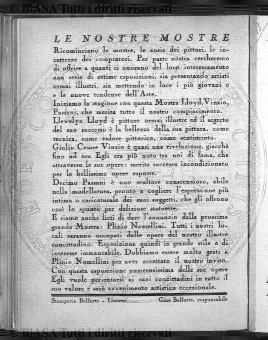 © BIASA Tutti i diritti riservati
LE NOSTRE MOSTRE
Ricominciano le mostre, le ansie dei pittori, le in-
certezze dei compratori. Per parte nostra cercheremo
di offrire a quanti ci onorano del loro interessamento
una serie di ottime esposizioni, sia presentando artisti
ormai illustri, sia mettendo in luce i più giovani e
le nuove tendenze dell'Arte.
Iniziamo la stagione con questa Mostra Lloyd, Vinzio,
Passani, che merita tutto il nostro compiacimento.
Llewelyn Lloyd è pittore ormai illustre ed il segreto
del suo successo è la bellezza della sua pittura, come
tecnica, come valore pittorico, come sentimento.
Giulio Cesare Vinzio è quasi una rivelazione, giacchè
fino ad ora Egli era più noto tra noi di fama, che
attraverso le sue opere: merita successo incondizionato
per le bellissime opere esposte.
Decimo Passani è uno scultore coscenzioso, abile
nella modellatura, pronto a cogliere l'espressione più
intima o caricaturale dei suoi soggetti, che gli offrono
così lo spunto per deliziose statuette.
E siamo anche lieti di dare l'annunzio della prossima
grande Mostra: Plinio Nomellini. Tutti i nostri lo-
cali saranno occupati dalle opere del nostro illustre
concittadino. Esposizione quindi in grande stile e di
interesse immancabile. Dobbiamo essere molto grati a
Plinio Nomellini per aver accettato il nostro invito.
Con questa esposizione numerosissima delle sue opere
Egli vuole presentarsi ai suoi concittadini in tutto il
suo valore e sarà avvenimento artistico eccezionale.
Stamperia Belforte - Livorno
Gino Belforte, responsabile
© BIASA Tutti i diritti riservati